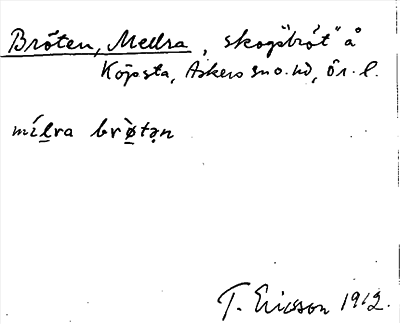 Bröten, Medra, skogsbröt" å
Köpsta, Askers sn o. hd, Ör. l.
mílra brø̀tən
T. Ericsson 1912.